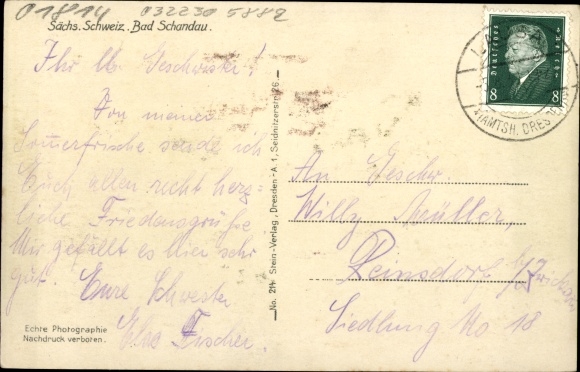 01814 032230 5882
Sächs. Schweiz. Bad Schandau.
Ihr lb. Geschwister!
Von meiner
Sommerfrische sende ich
Euch allen recht herz-
liche Friedensgrüße
Mir gefällt es hier sehr
gut. Eure Schwester
Els Fischer.
Echte Photographie
Nachdruck verboten.
No. 214 Stein-Verlag, Dresden-A. 1, Seidnitzerstr. 26.
Deutsches Reich
8 8
AMTSH. DRESDEN
An Geschw.
Willy Müller,
Reinsdorf b/ Zwickau
Siedlung No 18